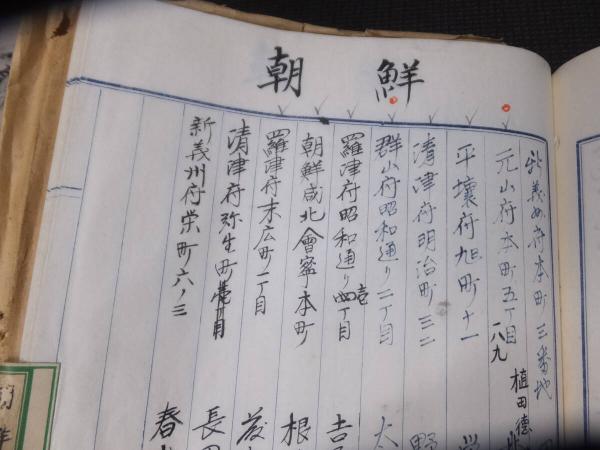 朝鮮
義州府本町三番地
元山府本町五丁目
八九
植田德
平壤府旭町十一
清津府明治町三二
群山府昭和通り二丁目 太
羅津府昭和通り四丁目 吉
朝鮮咸北會寧本町 根
羅津府末広町一丁目
清津府弥生町 長
新義州府栄町六ノ三 春